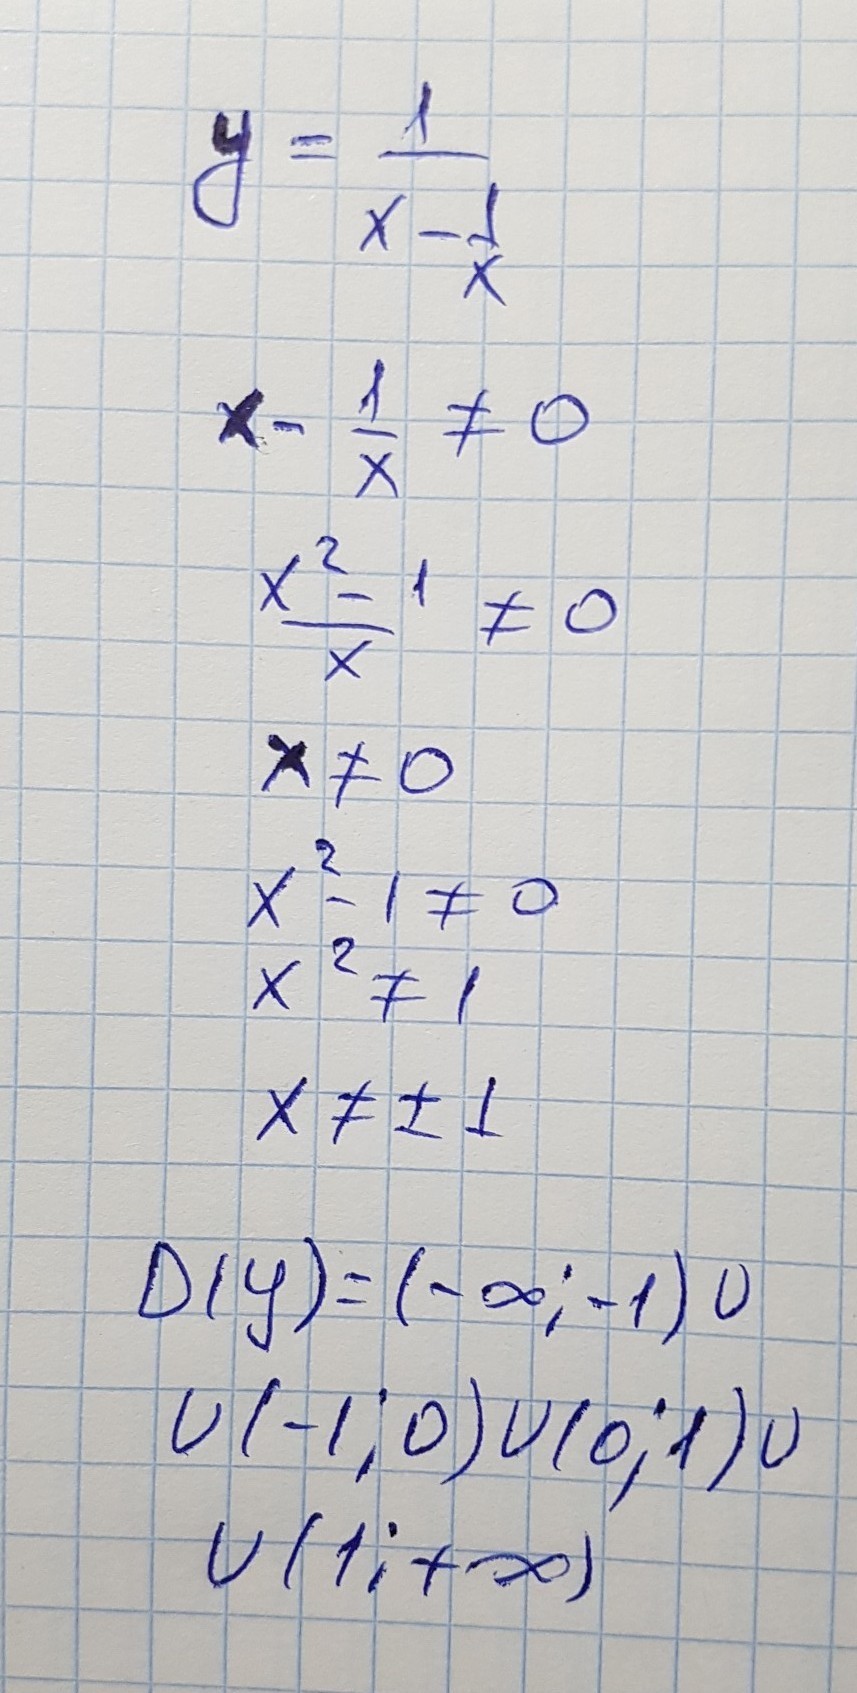 y = 1/(x - 1/x)
x - 1/x ≠ 0
(x² - 1)/x ≠ 0
x ≠ 0
x² - 1 ≠ 0
x² ≠ 1
x ≠ ± 1
D(y) = (-∞; -1) ∪
∪ (-1; 0) ∪ (0; 1) ∪
∪ (1; +∞)